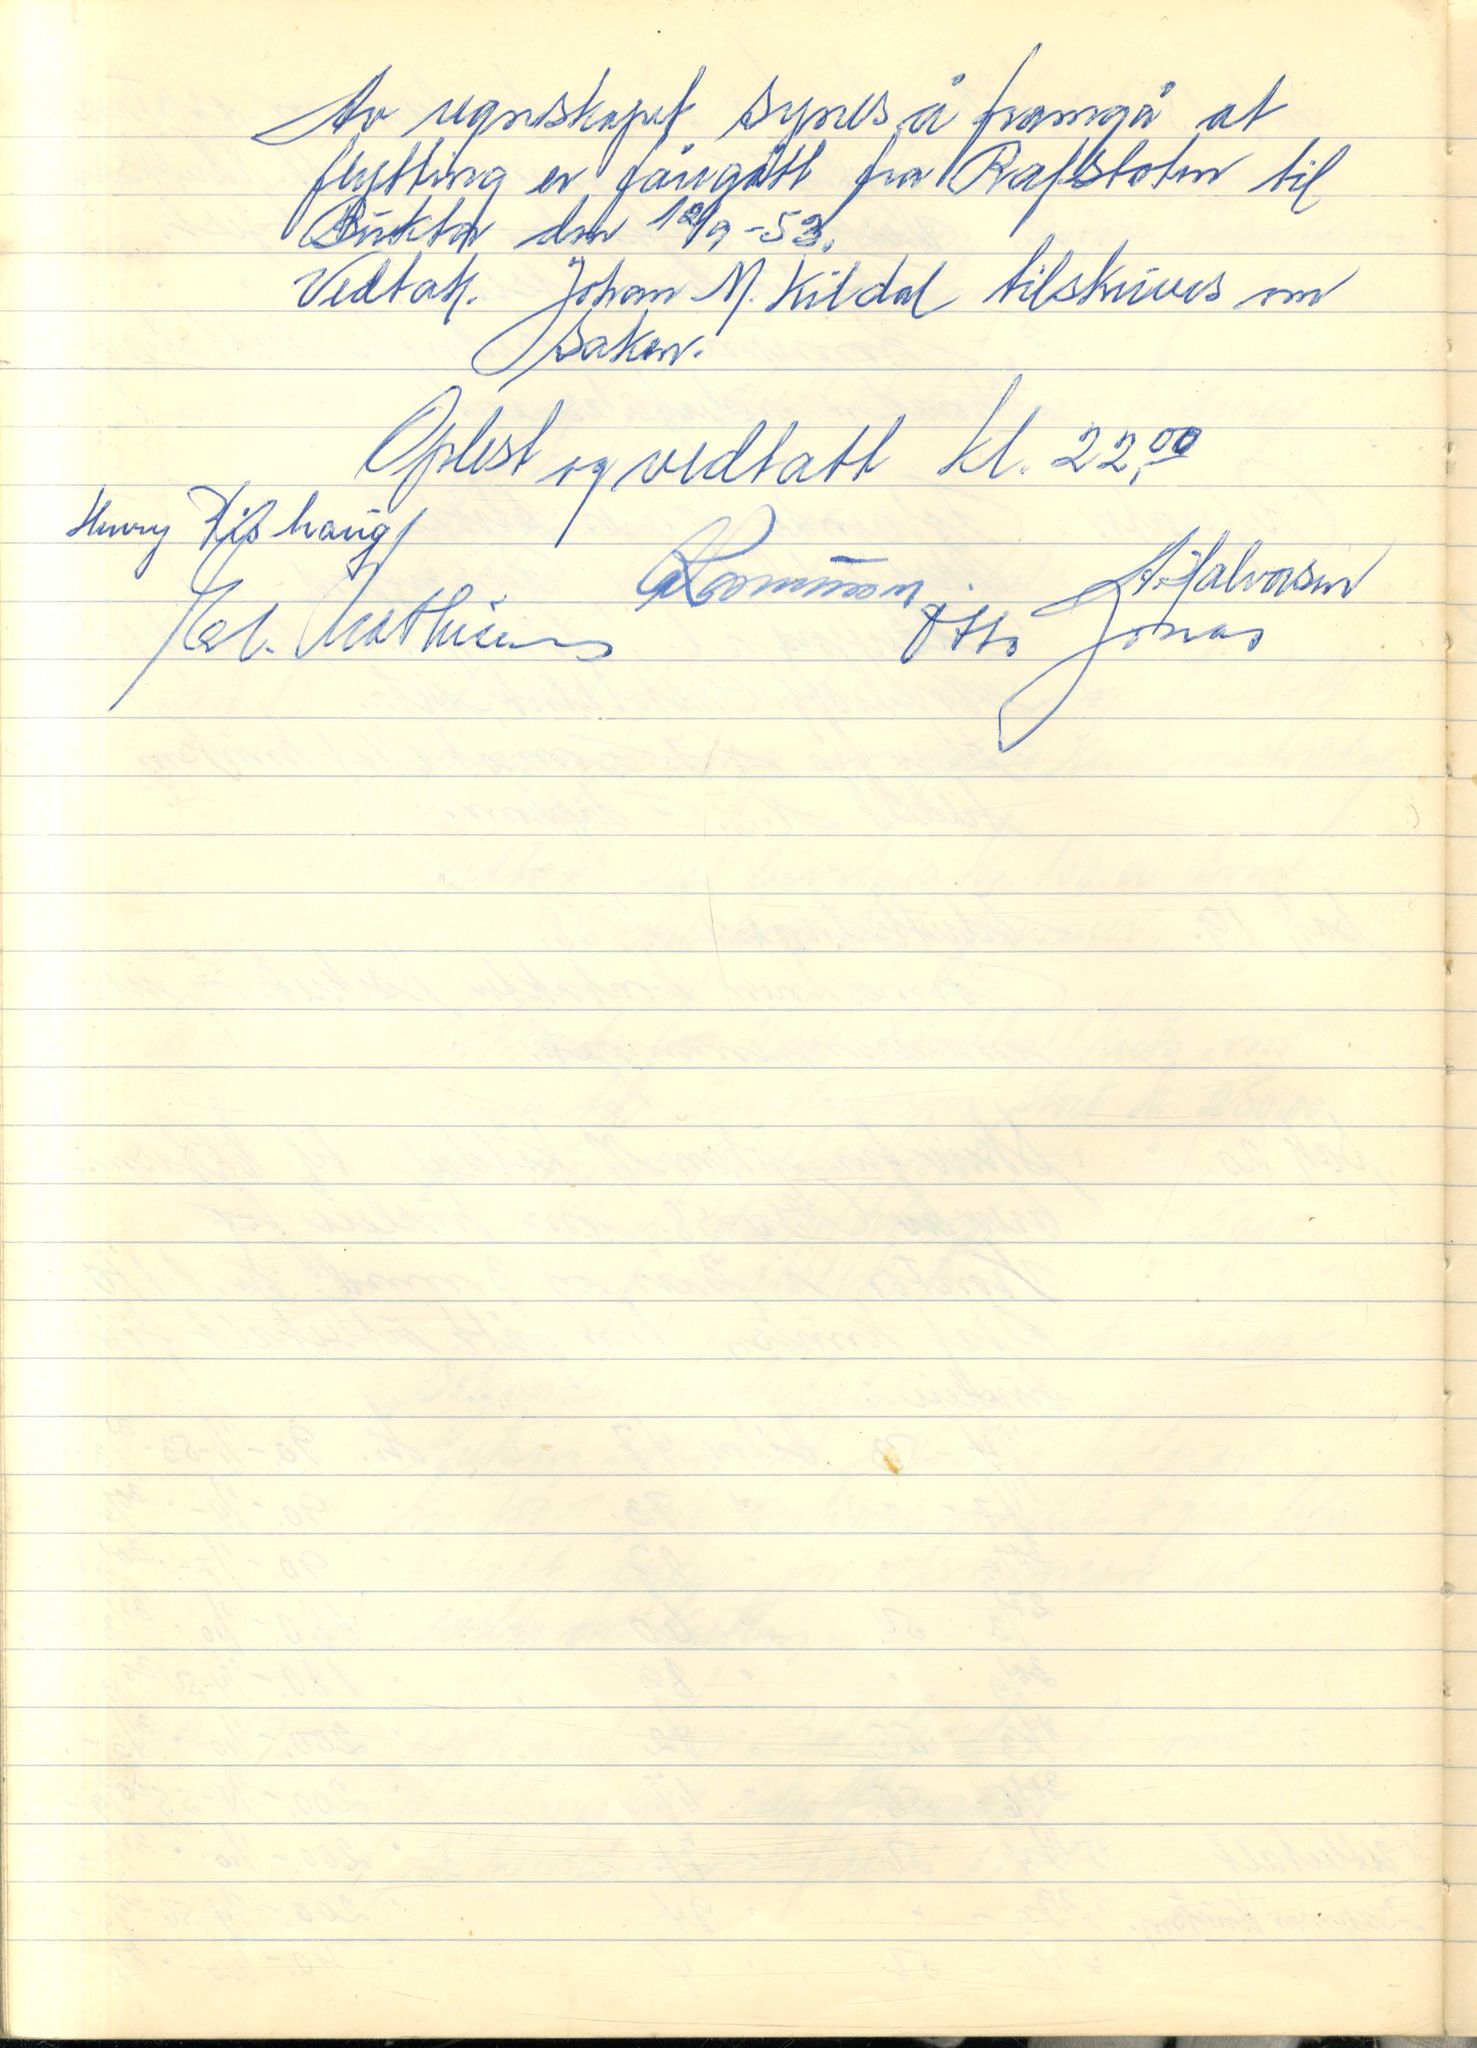 Av regnskapet synes å framgå at
flytting er fårigått fra Rafsbotn til
Bukta den 12/9-53.
Vedtak. Johan M. Kildal tilskrives om
saken.
Oplest og vedtatt kl. 22,00
Henry
Mathisen
A. Halvorsen
Otto Jonas